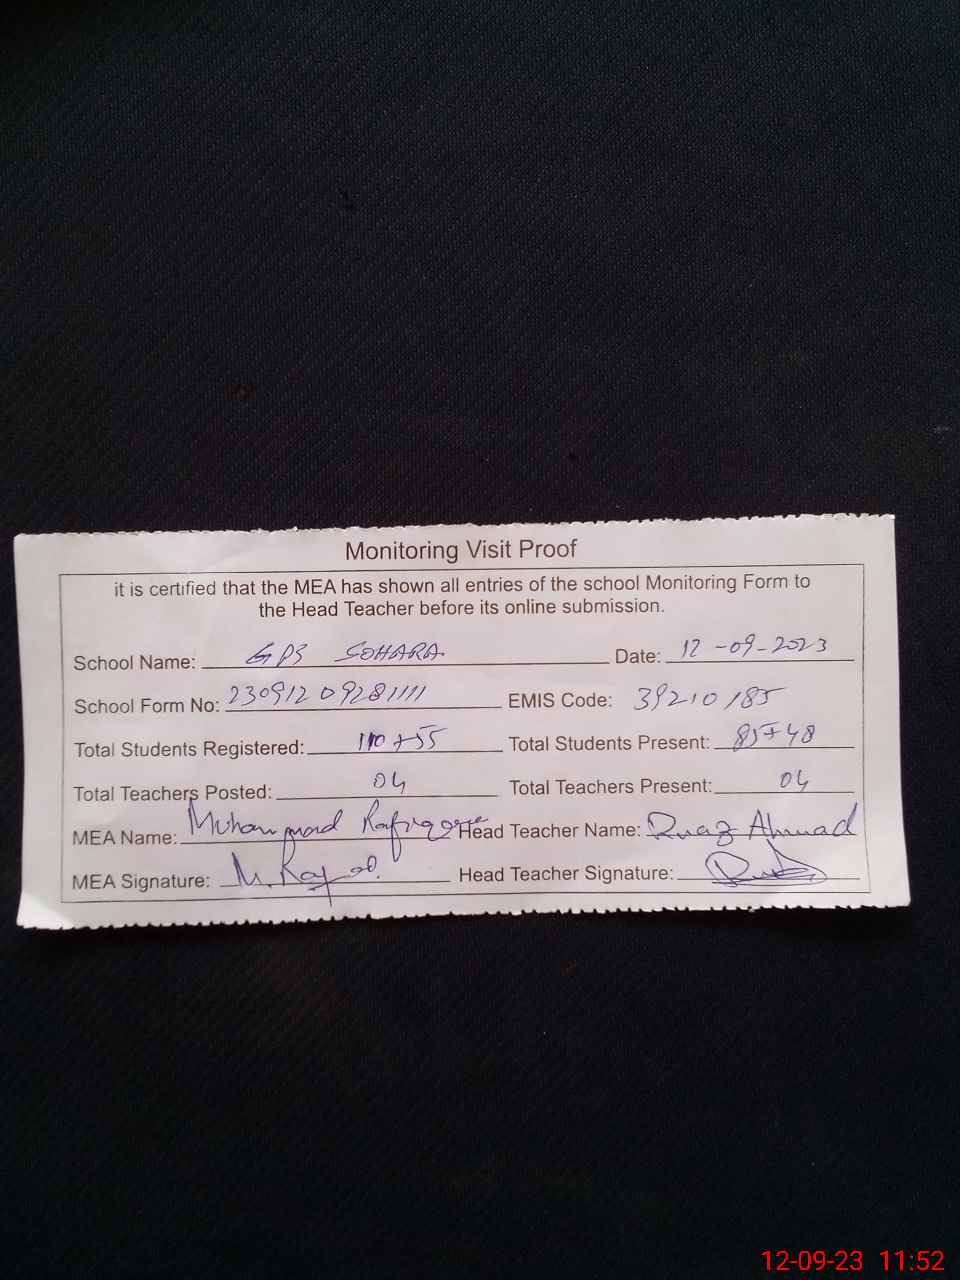 Monitoring Visit Proof
it is certified that the MEA has shown all entries of the school Monitoring Form to
the Head Teacher before its online submission.
School Name: GPS SOHARA Date: 12-09-2023
School Form No: 23091209281111 EMIS Code: 39210185
Total Students Registered: 110+55 Total Students Present: 85+48
Total Teachers Posted: 04 Total Teachers Present: 04
MEA Name: Muhammad Head Teacher Name: Ahmad
MEA Signature: Head Teacher Signature:
12-09-23 11:52